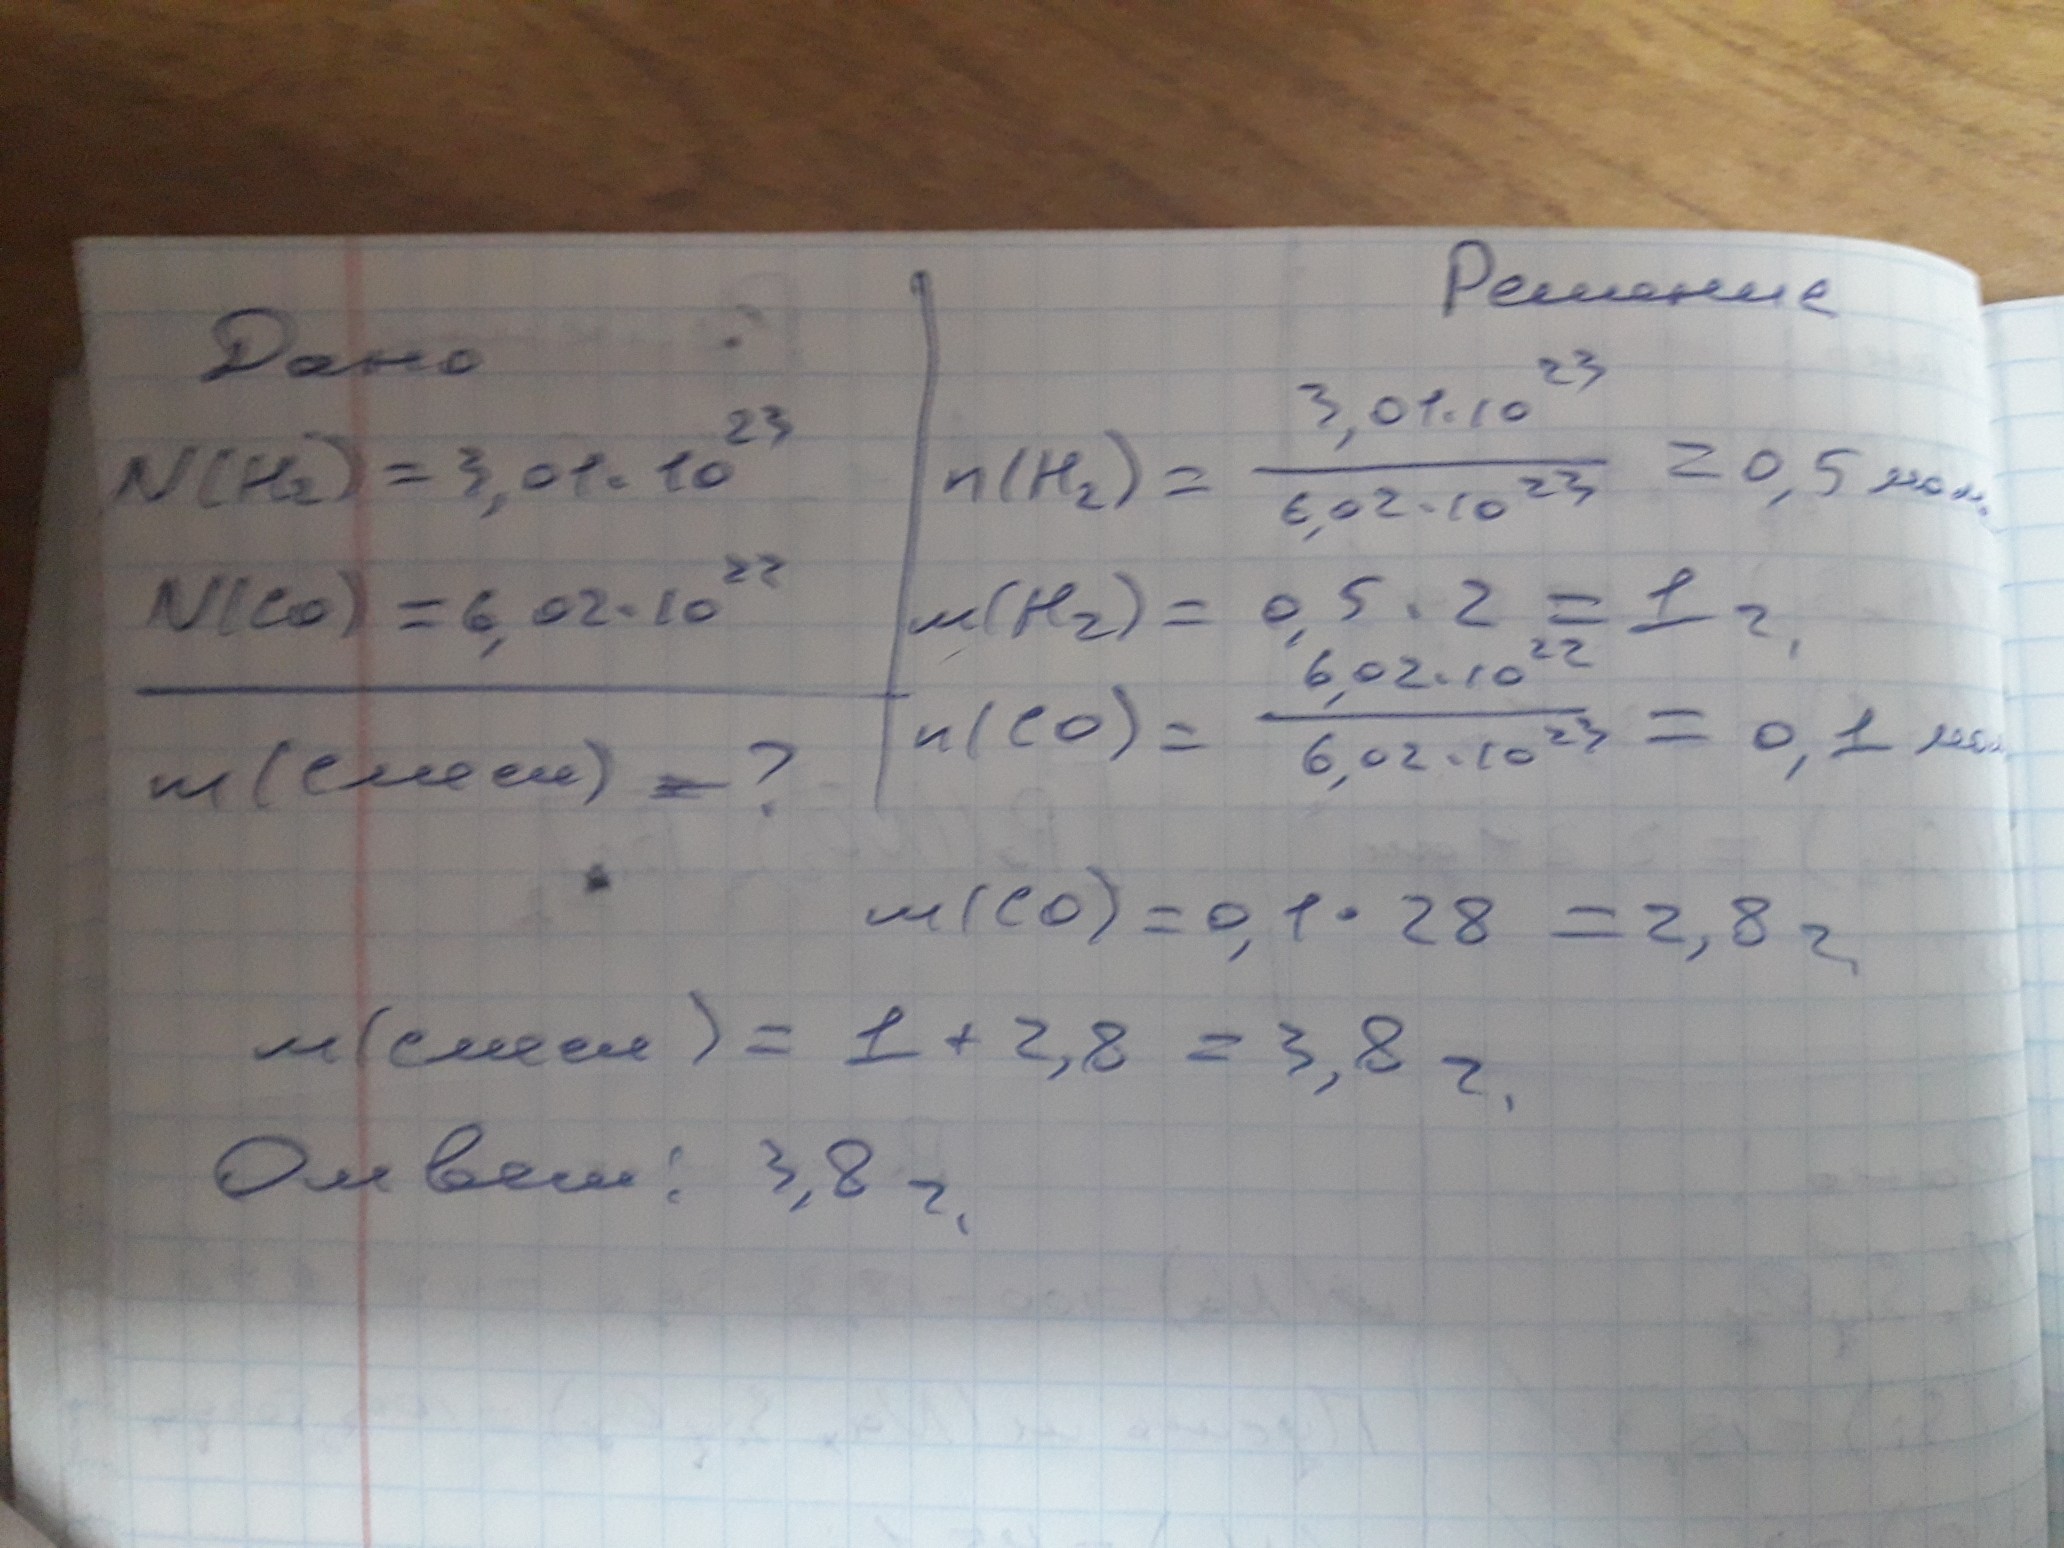 Решение
Дано
N(H₂) = 3,01·10²³
N(CO) = 6,02·10²²
m(смеси) = ?
n(H₂) = 3,01·10²³ / 6,02·10²³ = 0,5 мол.
m(H₂) = 0,5 · 2 = 1 г.
n(CO) = 6,02·10²² / 6,02·10²³ = 0,1 мол.
m(CO) = 0,1 · 28 = 2,8 г.
m(смеси) = 1 + 2,8 = 3,8 г.
Ответ: 3,8 г.